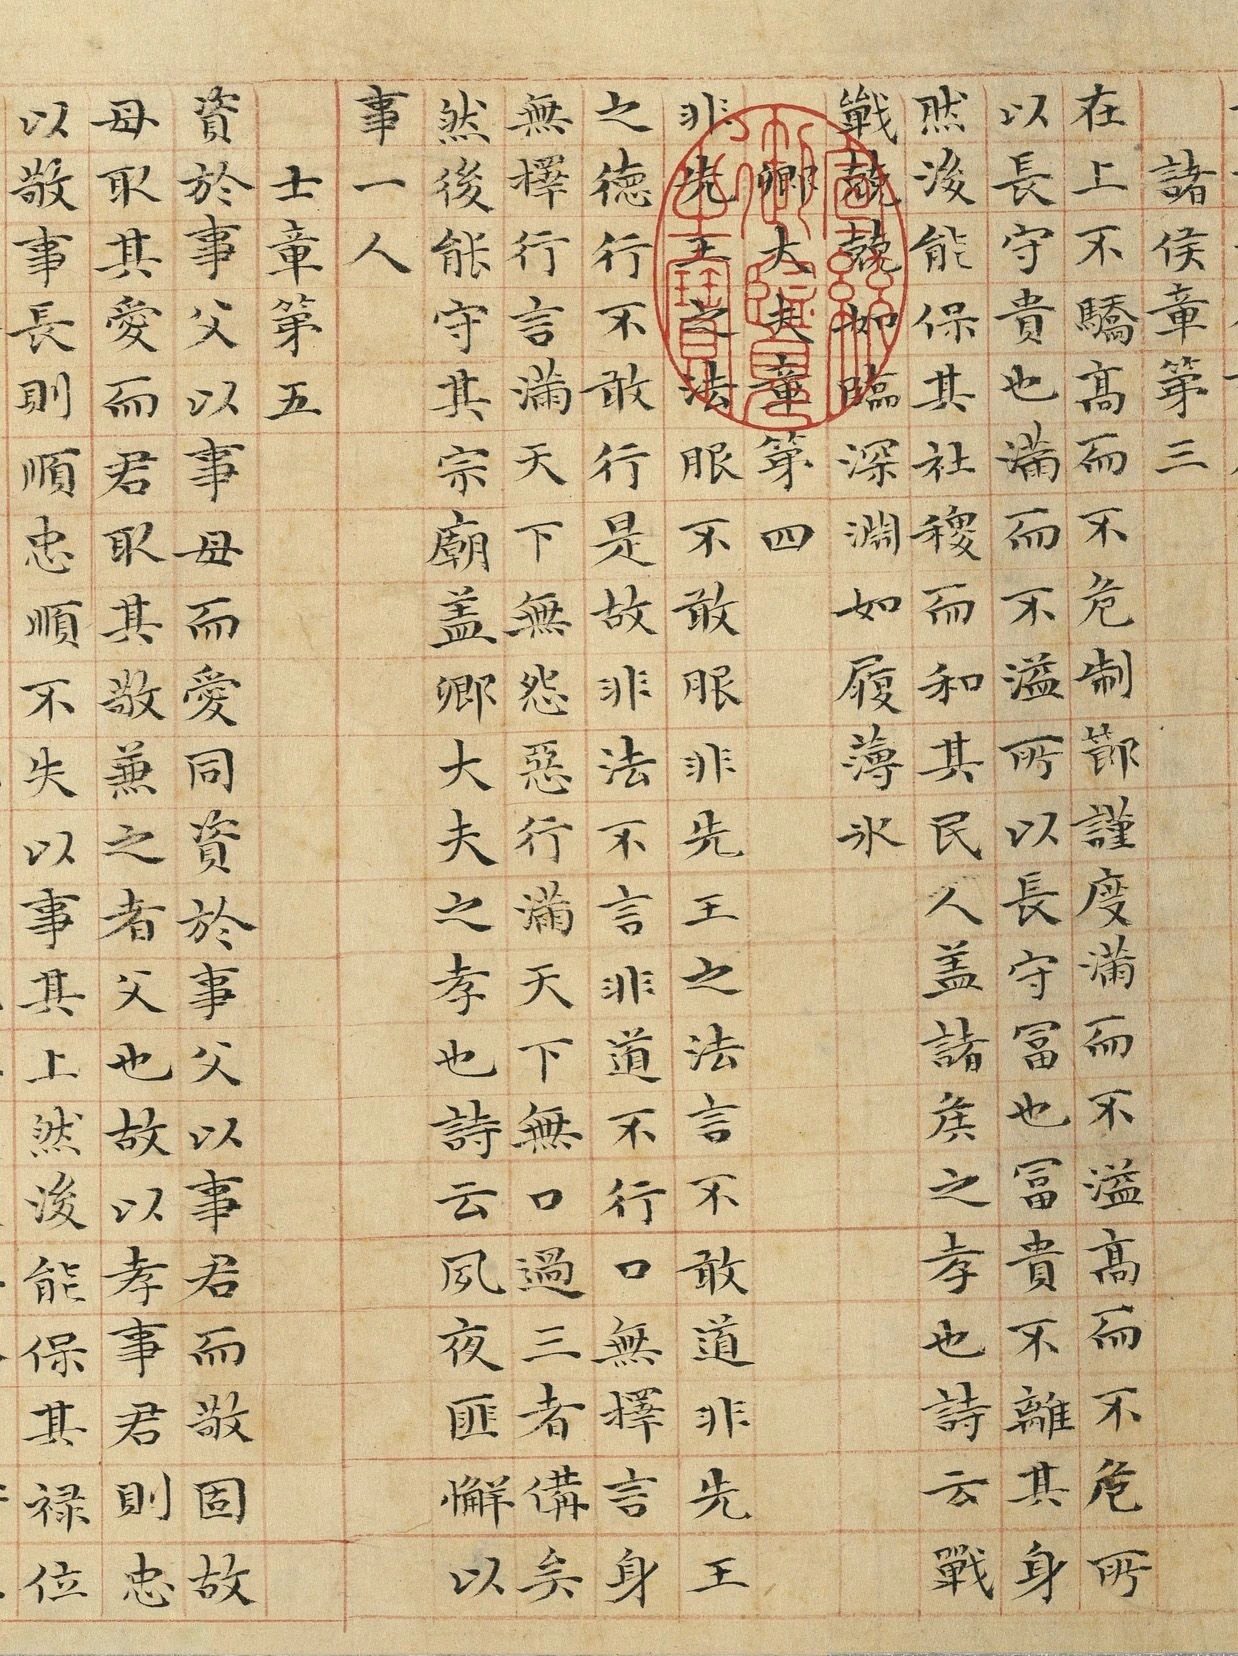 諸侯章第三
在上不驕高而不危制節謹度滿而不溢高而不危所
以長守貴也滿而不溢所以長守冨也冨貴不離其身
然後能保其社稷而和其民人盖諸侯之孝也詩云戰
戰兢兢如臨深淵如履薄氷
卿大夫章第四
非先王之法服不敢服非先王之法言不敢道非先王
之徳行不敢行是故非法不言非道不行口無擇言身
無擇行言滿天下無怨惡行滿天下無口過三者備矣
然後能守其宗廟盖卿大夫之孝也詩云夙夜匪懈以
事一人
士章第五
資於事父以事母而愛同資於事父以事君而敬固故
母取其愛而君取其敬兼之者父也故以孝事君則忠
以敬事長則順忠順不失以事其上然後能保其禄位
宣統御覽之寶